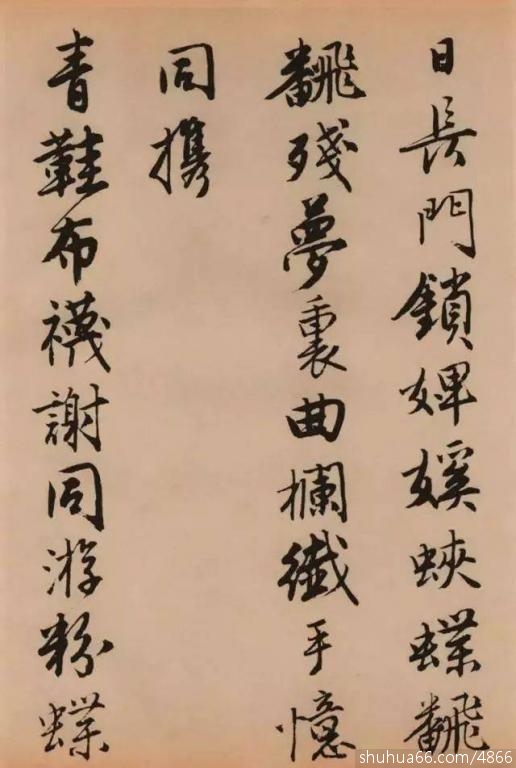 日長門鎖婢媛蛺蝶飜
飜殘夢裏曲欄纖手憶
同攜
青鞋布襪謝同游粉蝶
shuhua66.com/4866